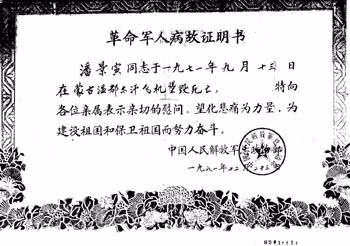 革命军人病故证明书
潘景寅同志于一九七一年九月十三日
在蒙古温都尔汗飞机坠毁死亡,特向
各位亲属表示亲切的慰问。望化悲痛为力量,为
建设祖国和保卫祖国而努力奋斗。
中国人民解放军
一九八一年十二月二十三日